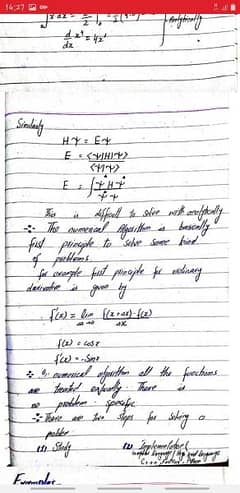 14:27
d/dx x⁴ = 4x³
Analytically
Similarly
Hψ = Eψ
E = <ψ|H|ψ>
<ψ|ψ>
E = ∫ ψ* H ψ
ψ* ψ
This is difficult to solve with analytically
The numerical algorithm is basically
first principle to solve some kind
of problems.
for example first principle for ordinary
derivative is given by
f'(x) = lim f(x+Δx)-f(x)
Δx→0 Δx
f(x) = cosx
f'(x) = -Sinx
numerical algorithm all the functions
are treated equally. There is
no problem specific
There are two steps for solving a
problem.
(1) Study (2) Implementation (
Example